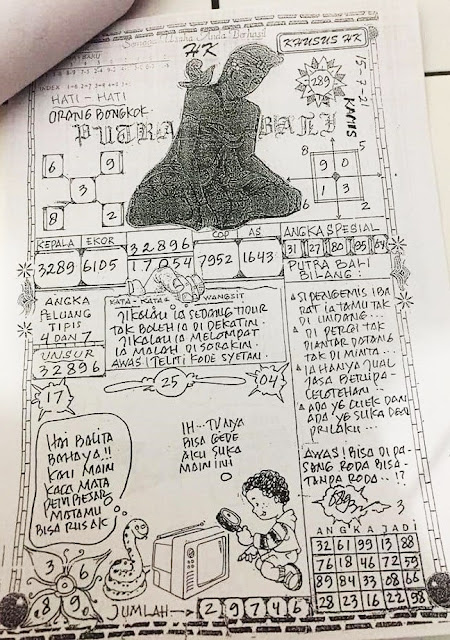 Semoga Usaha Anda Berhasil
HK
KHUSUS HK
289
15-7-21
KAMIS
INDEX
HATI - HATI
ORANG BONGKOK
PUTRA BALI
6 9
3
8 2
8 5
9 0
1 3
6 2
KEPALA EKOR 32896 COP AS
3289 6105 17054 7952 1643
ANGKA SPESIAL
31 27 80 95 64
PUTRA BALI
BILANG:
ANGKA
PELUANG
TIPIS
4 DAN 7
UNSUR
32896
KATA-KATA WANGSIT
JIKALAU IA SEDANG TIDUR
TAK BOLEH IA DI DEKATIN
JIKALAU IA MELOMPAT
IA MALAH DI SORAKIN
AWAS! TELITI KODE SYETAN
SI PENGEMIS IBA
RAT IA TAMU TAK
DI UNDANG...
DI PERGI TAK
DIANTAR DATANG
TAK DI MINTA...
IA HANYA JUAL
JASA BERUPA
CELOTEHAN..
ADA YG CUEK DAN
ADA YG SUKA DGN
PRILAKU...
17
25
04
HAI BALITA
BAHAYA!!
KAU MAIN
KACA MATA
MATAMU
BISA RUSAK
IH... TV NYA
BISA GEDE
AKU SUKA
MAIN INI
AWAS! BISA DI PA-
SANG RODA BISA
TANPA RODA..!?
3
3 6
8 9
JUMLAH → 29746
ANGKA JADI
32 61 99 13 88
76 18 46 72 59
89 84 33 08 66
28 23 16 22 98